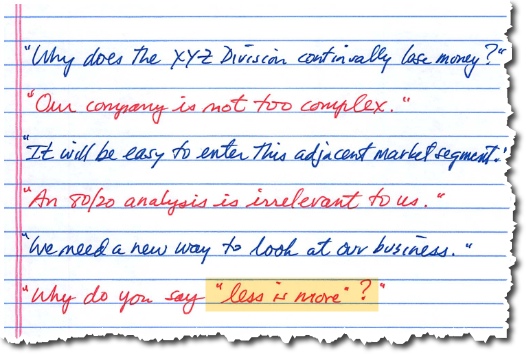 "Why does the XYZ Division continually lose money?"
"Our company is not too complex."
"It will be easy to enter this adjacent market segment."
"An 80/20 analysis is irrelevant to us."
"We need a new way to look at our business."
"Why do you say "less is more"?"